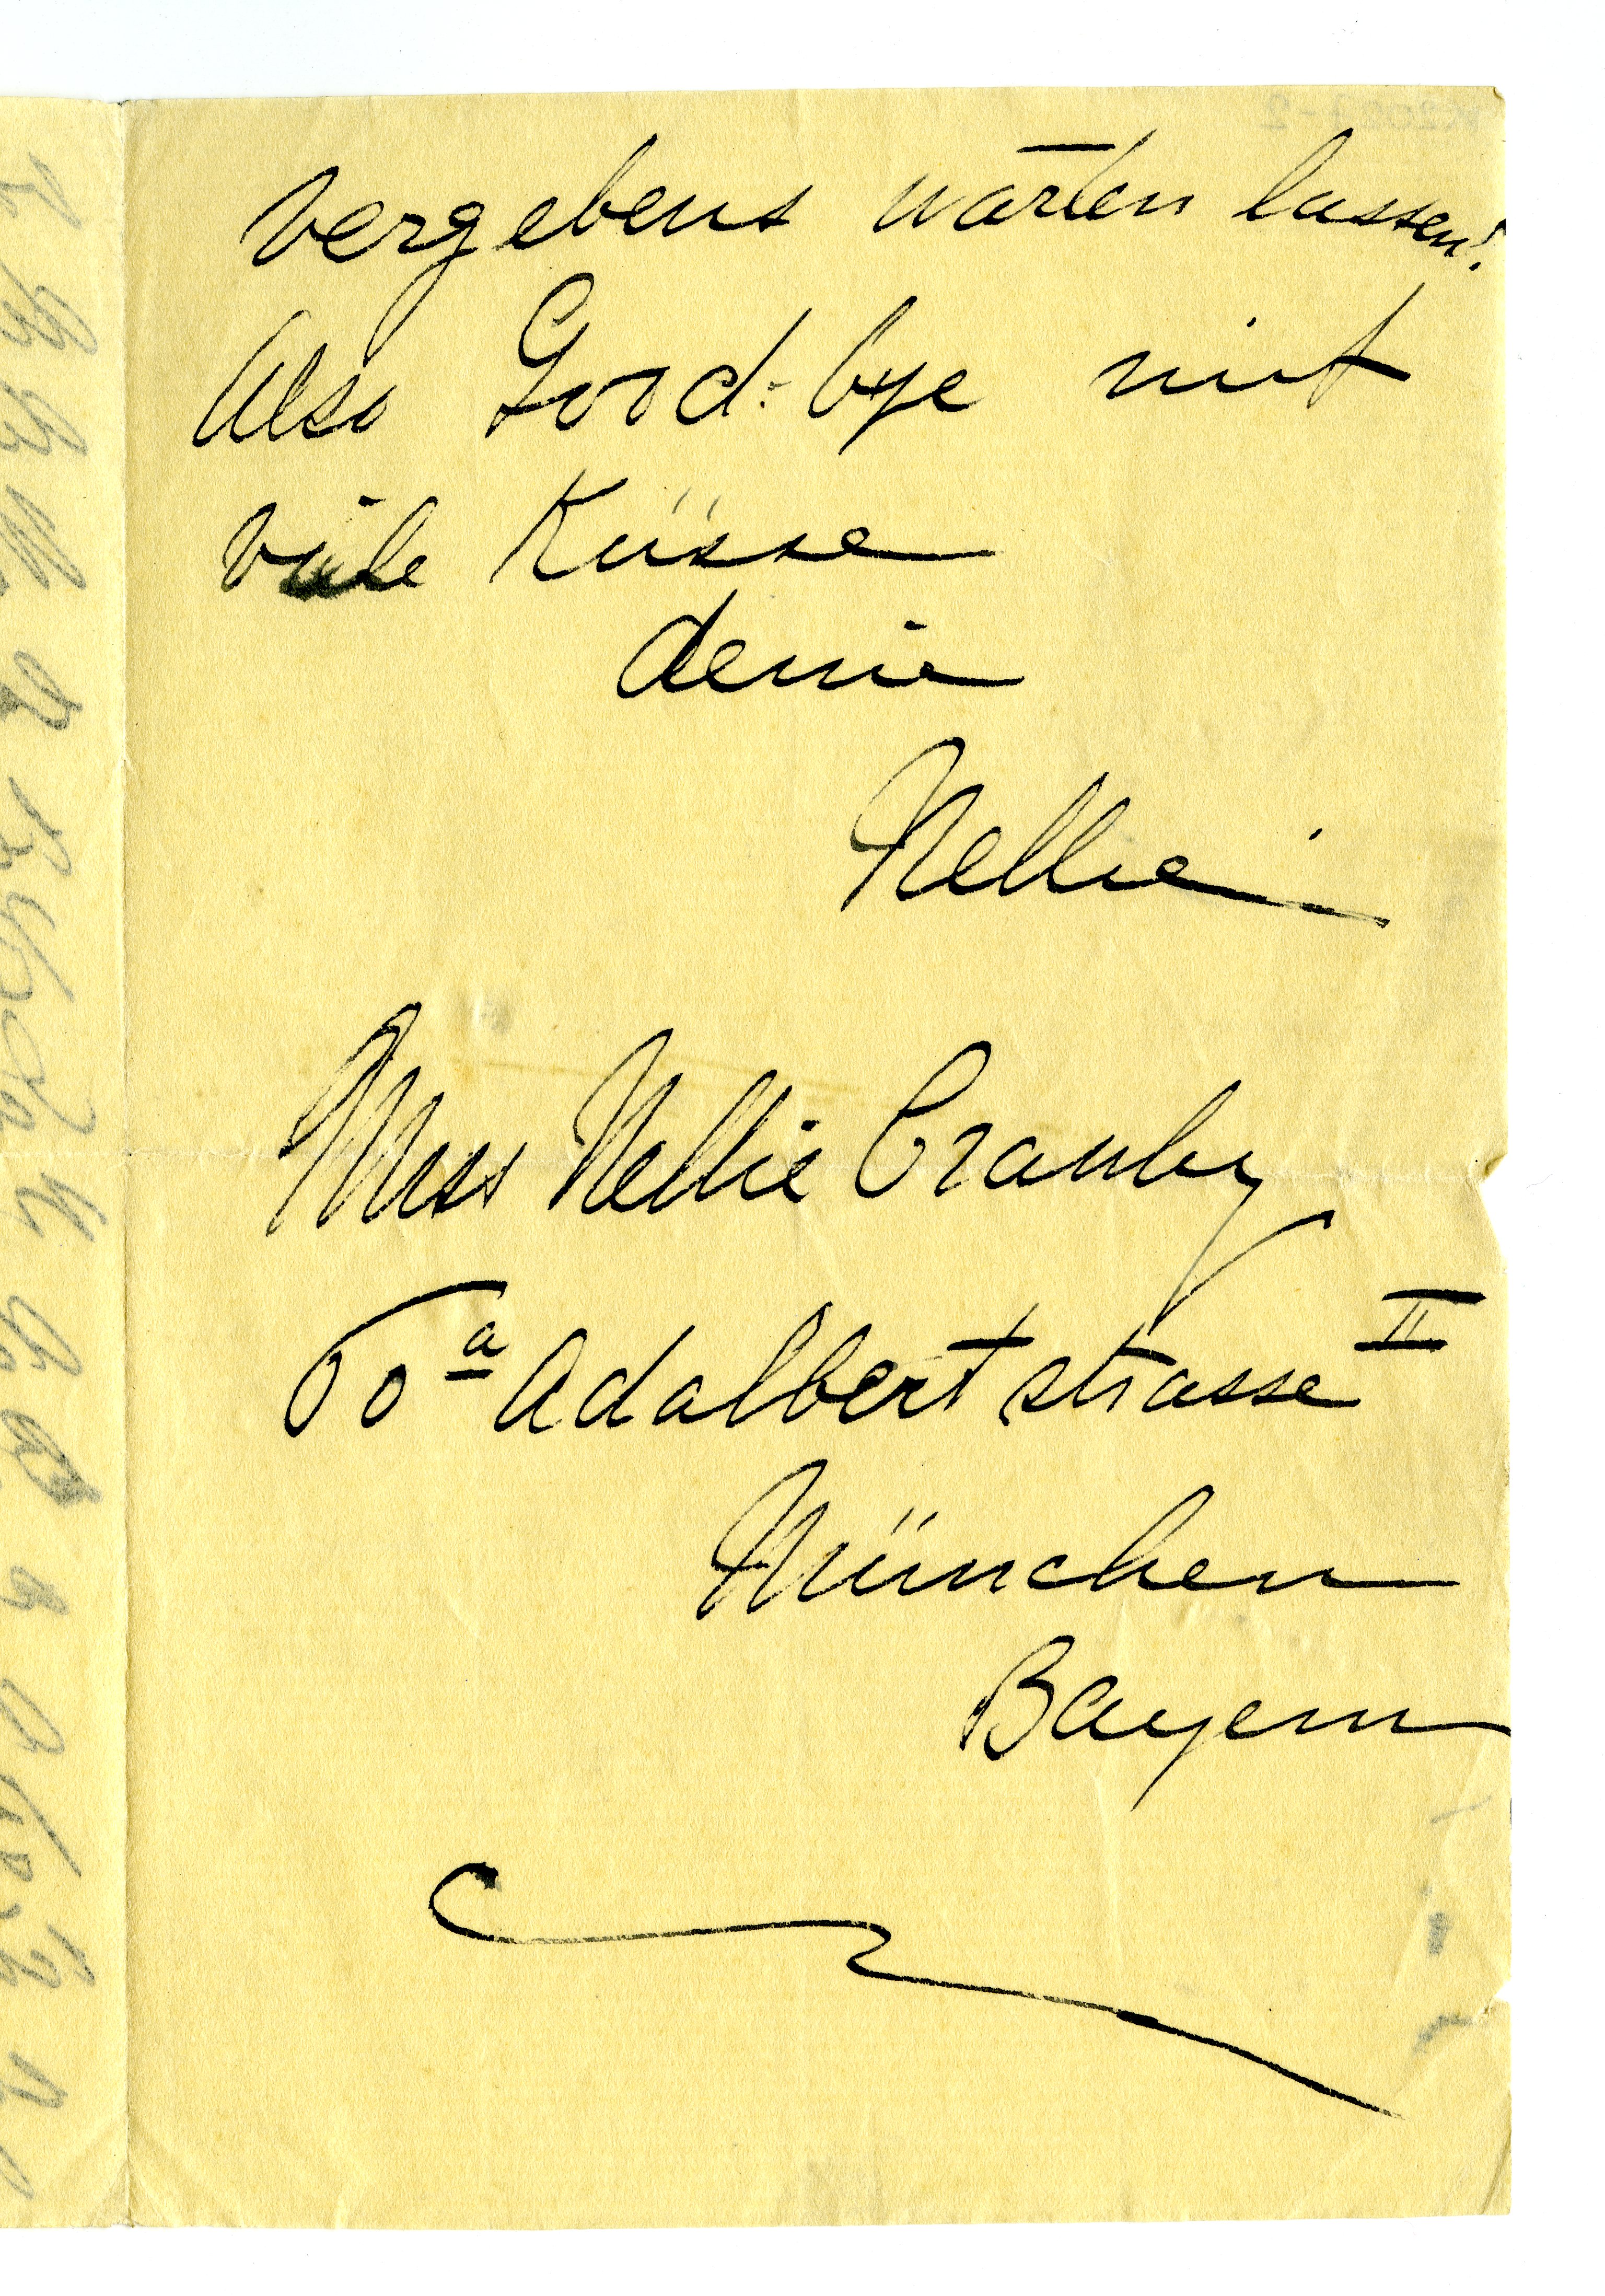 vergebens warten lassen!
Also Good-bye mit
viele Küsse
deine
Nellie
Miss Nellie Cramby
60a Adalbertstrasse II
München
Bayern